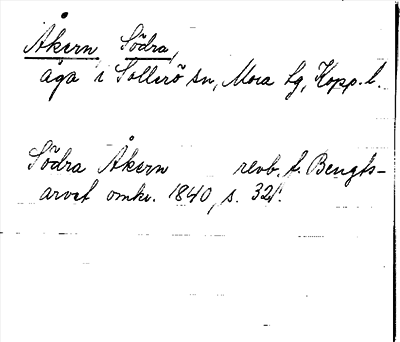 Åkern, Södra,
äga i Sollerö sn, Mora tg, Kopp. l.
Södra Åkern revb. t. Bengts-
arvet omkr. 1840, s. 321.